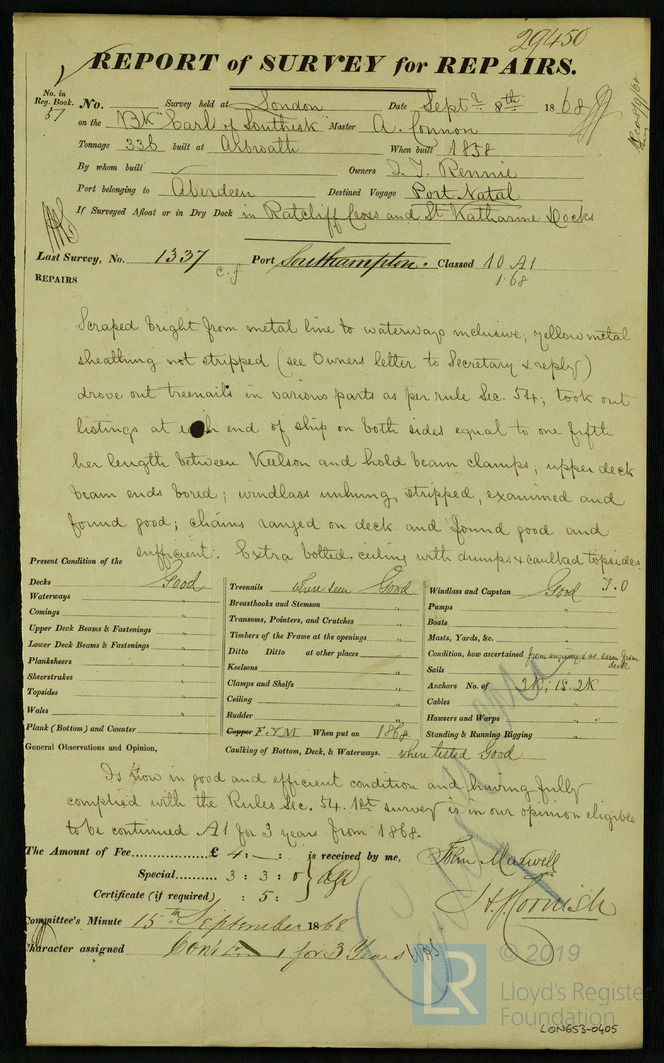 29450
REPORT of SURVEY for REPAIRS.
No. in Reg. Book. 57
No. Survey held at London Date Sept. 8th 1868
on the Bk "Earl of Southesk" Master A. Connon
Tonnage 336 built at Arbroath When built 1858
By whom built Owners J. T. Rennie
Port belonging to Aberdeen Destined Voyage Port Natal
If Surveyed Afloat or in Dry Dock in Ratcliff Cross and St Katharine Docks
Last Survey, No. 1337 Port Southampton. Classed 10 A1
c.f 1.68
REPAIRS
Scraped bright from metal line to waterways inclusive, yellow metal
sheathing not stripped (see Owners letter to Secretary & reply)
drove out treenails in various parts as per rule Sec. 54; took out
listings at each end of ship on both sides equal to one fifth
her length between Keelson and hold beam clamps; upper deck
beam ends bored; windlass unhung, stripped, examined and
found good; chains ranged on deck and found good and
sufficient. Extra bolted. ceiling with dumps & caulked topsides.
Present Condition of the
Decks Good
Waterways "
Comings "
Upper Deck Beams & Fastenings "
Lower Deck Beams & Fastenings "
Planksheers "
Sheerstrakes "
Topsides "
Wales "
Plank (Bottom) and Counter "
Treenails where seen Good
Breasthooks and Stemson "
Transoms, Pointers, and Crutches "
Timbers of the Frame at the openings "
Ditto Ditto at other places "
Keelsons "
Clamps and Shelfs "
Ceiling "
Rudder "
Copper F.Y.M When put on 1868
Caulking of Bottom, Deck, & Waterways. where tested Good
Windlass and Capstan Good
Pumps "
Boats "
Masts, Yards, &c. "
Condition, how ascertained from enquiry & as seen from deck
Sails "
Anchors No. of 3B, 1S. 2K
Cables "
Hawsers and Warps "
Standing & Running Rigging "
General Observations and Opinion,
Is now in good and efficient condition and having fully
complied with the Rules Sec. 54. 1st survey is in our opinion eligible
to be continued A1 for 3 years from 1868.
The Amount of Fee £ 4 : — : is received by me,
Special 3 : 3 : 0
Certificate (if required) : 5 :
John Maxwell
H. J. Cornish
Committee's Minute 15th September 1868
Character assigned Contd 1 for 3 Years
© 2019
LR
Lloyd's Register
Foundation
LON653-0405